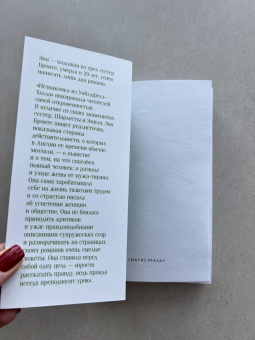 Энн — младшая из трех сестер
Бронте, умерла в 29 лет, успев
написать лишь два романа.
«Незнакомка из Уайлдфелл-
Холла» шокировала читателей
своей откровенностью.
В отличие от своих знаменитых
сестер, Шарлотты и Эмили, Энн
Бронте пишет реалистично,
показывая стороны
действительности, о которых
в Англии ее времени обычно
молчали, — о пьянстве
и о том, на что способен
пьяный человек; о разводе
и уходе жены от мужа-тирана.
Она сама зарабатывала
себе на жизнь тяжелым трудом
и со страстью писала
об угнетении женщин
в обществе. Она не боялась
приводить критиков
в ужас правдоподобными
описаниями супружеских ссор
и разворачивать на страницах
своих романов очень смелые
сюжеты. Она ставила перед
собой одну цель — просто
рассказать правду, ведь правда
всегда преподносит урок.